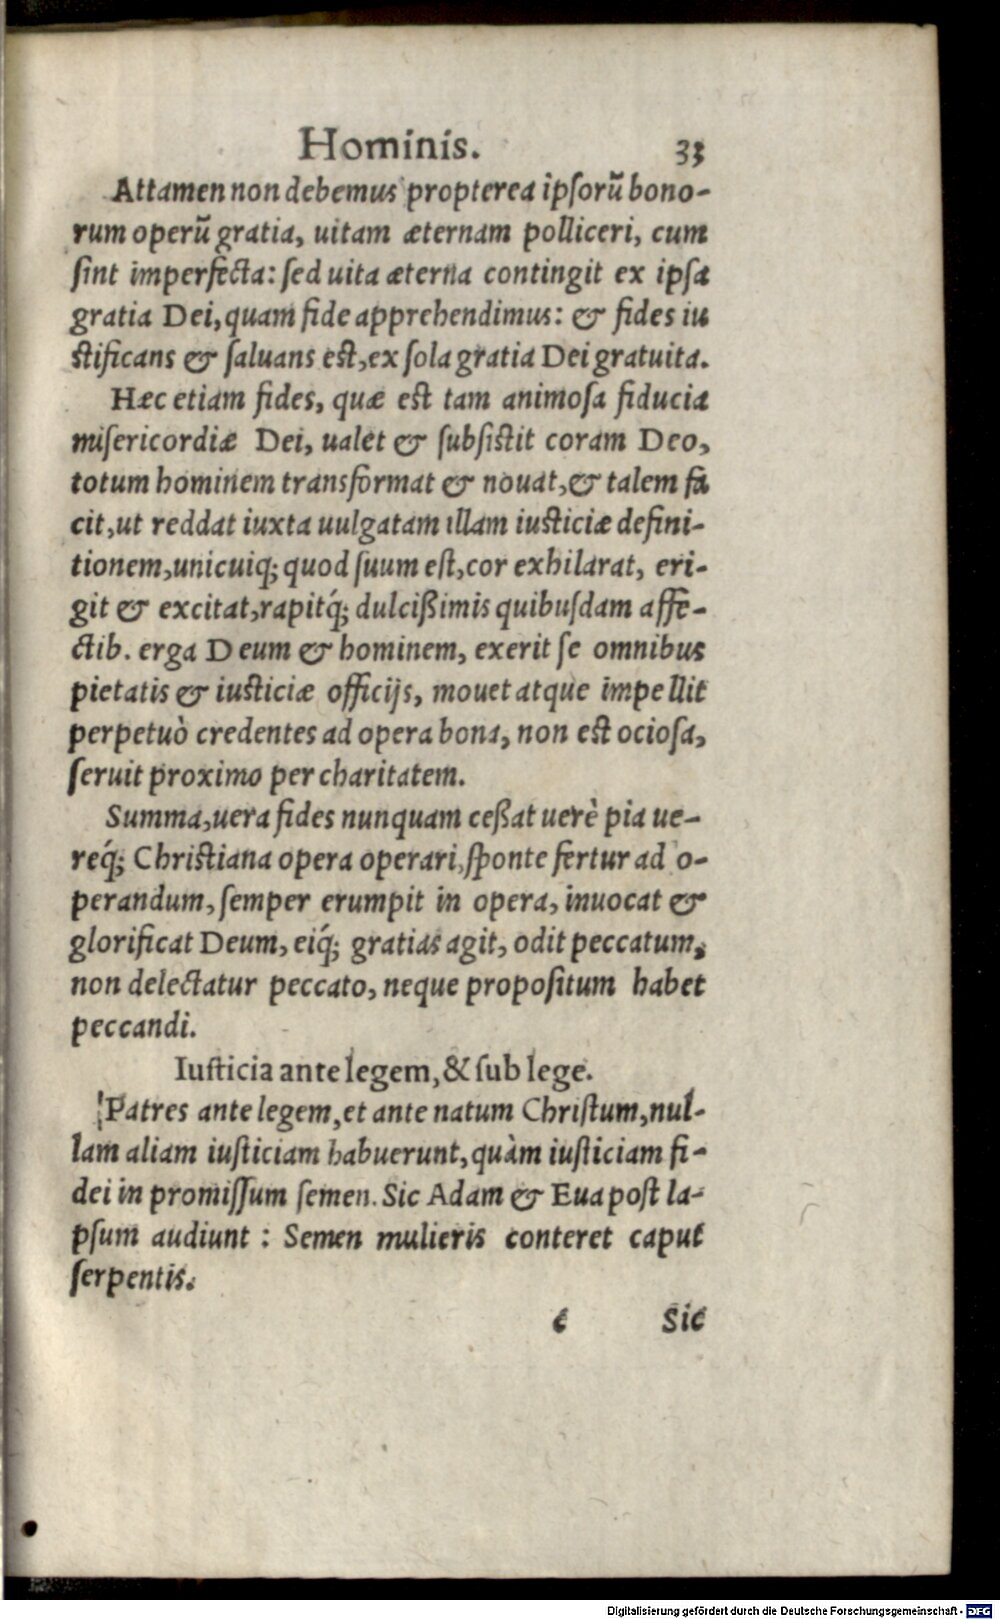 Hominis. 33
Attamen non debemus propterea ipsorũ bono-
rum operũ gratia, uitam æternam polliceri, cum
sint imperfecta: sed uita æterna contingit ex ipsa
gratia Dei, quam fide apprehendimus: & fides iu
stificans & saluans est, ex sola gratia Dei gratuita.
Hæc etiam fides, quæ est tam animosa fiducia
misericordiæ Dei, ualet & subsistit coram Deo,
totum hominem transformat & nouat, & talem fa
cit, ut reddat iuxta uulgatam illam iusticiæ defini-
tionem, unicuiq; quod suum est, cor exhilarat, eri-
git & excitat, rapitq́; dulcißimis quibusdam affe-
ctib. erga Deum & hominem, exerit se omnibus
pietatis & iusticiæ officijs, mouet atque impellit
perpetuò credentes ad opera bona, non est ociosa,
seruit proximo per charitatem.
Summa, uera fides nunquam ceßat uerè pia ue-
req́; Christiana opera operari, sponte fertur ad o-
perandum, semper erumpit in opera, inuocat &
glorificat Deum, eiq́; gratias agit, odit peccatum,
non delectatur peccato, neque propositum habet
peccandi.
Iusticia ante legem, & sub lege.
Patres ante legem, et ante natum Christum, nul-
lam aliam iusticiam habuerunt, quàm iusticiam fi-
dei in promissum semen. Sic Adam & Eua post la-
psum audiunt: Semen mulieris conteret caput
serpentis.
c Sic
Digitalisierung gefördert durch die Deutsche Forschungsgemeinschaft - DFG